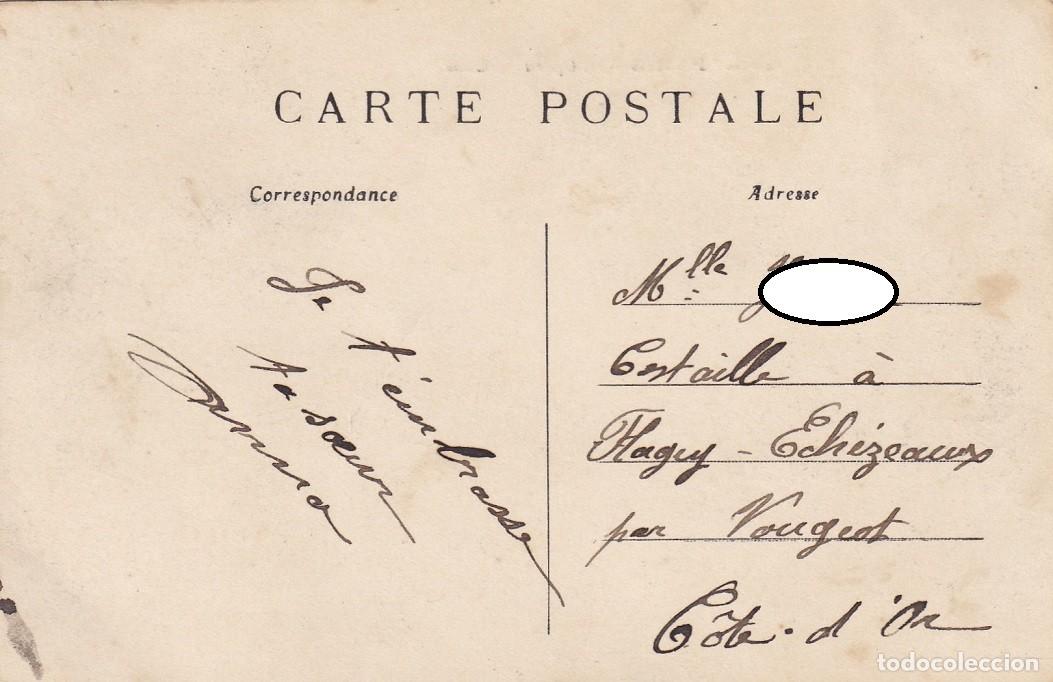 CARTE POSTALE
Correspondance
Je
t'embrasse
ta sœur
Anna
Adresse
Mlle
à
Flagey - Echézeaux
par Vougeot
Côte-d'Or
todocoleccion